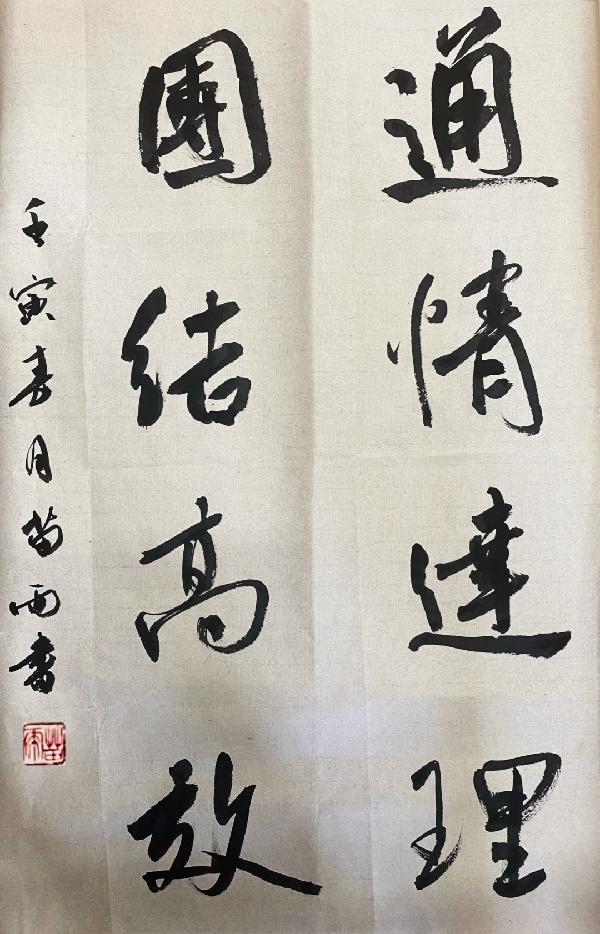 通情達理
團結高效
壬寅春月苗雨書